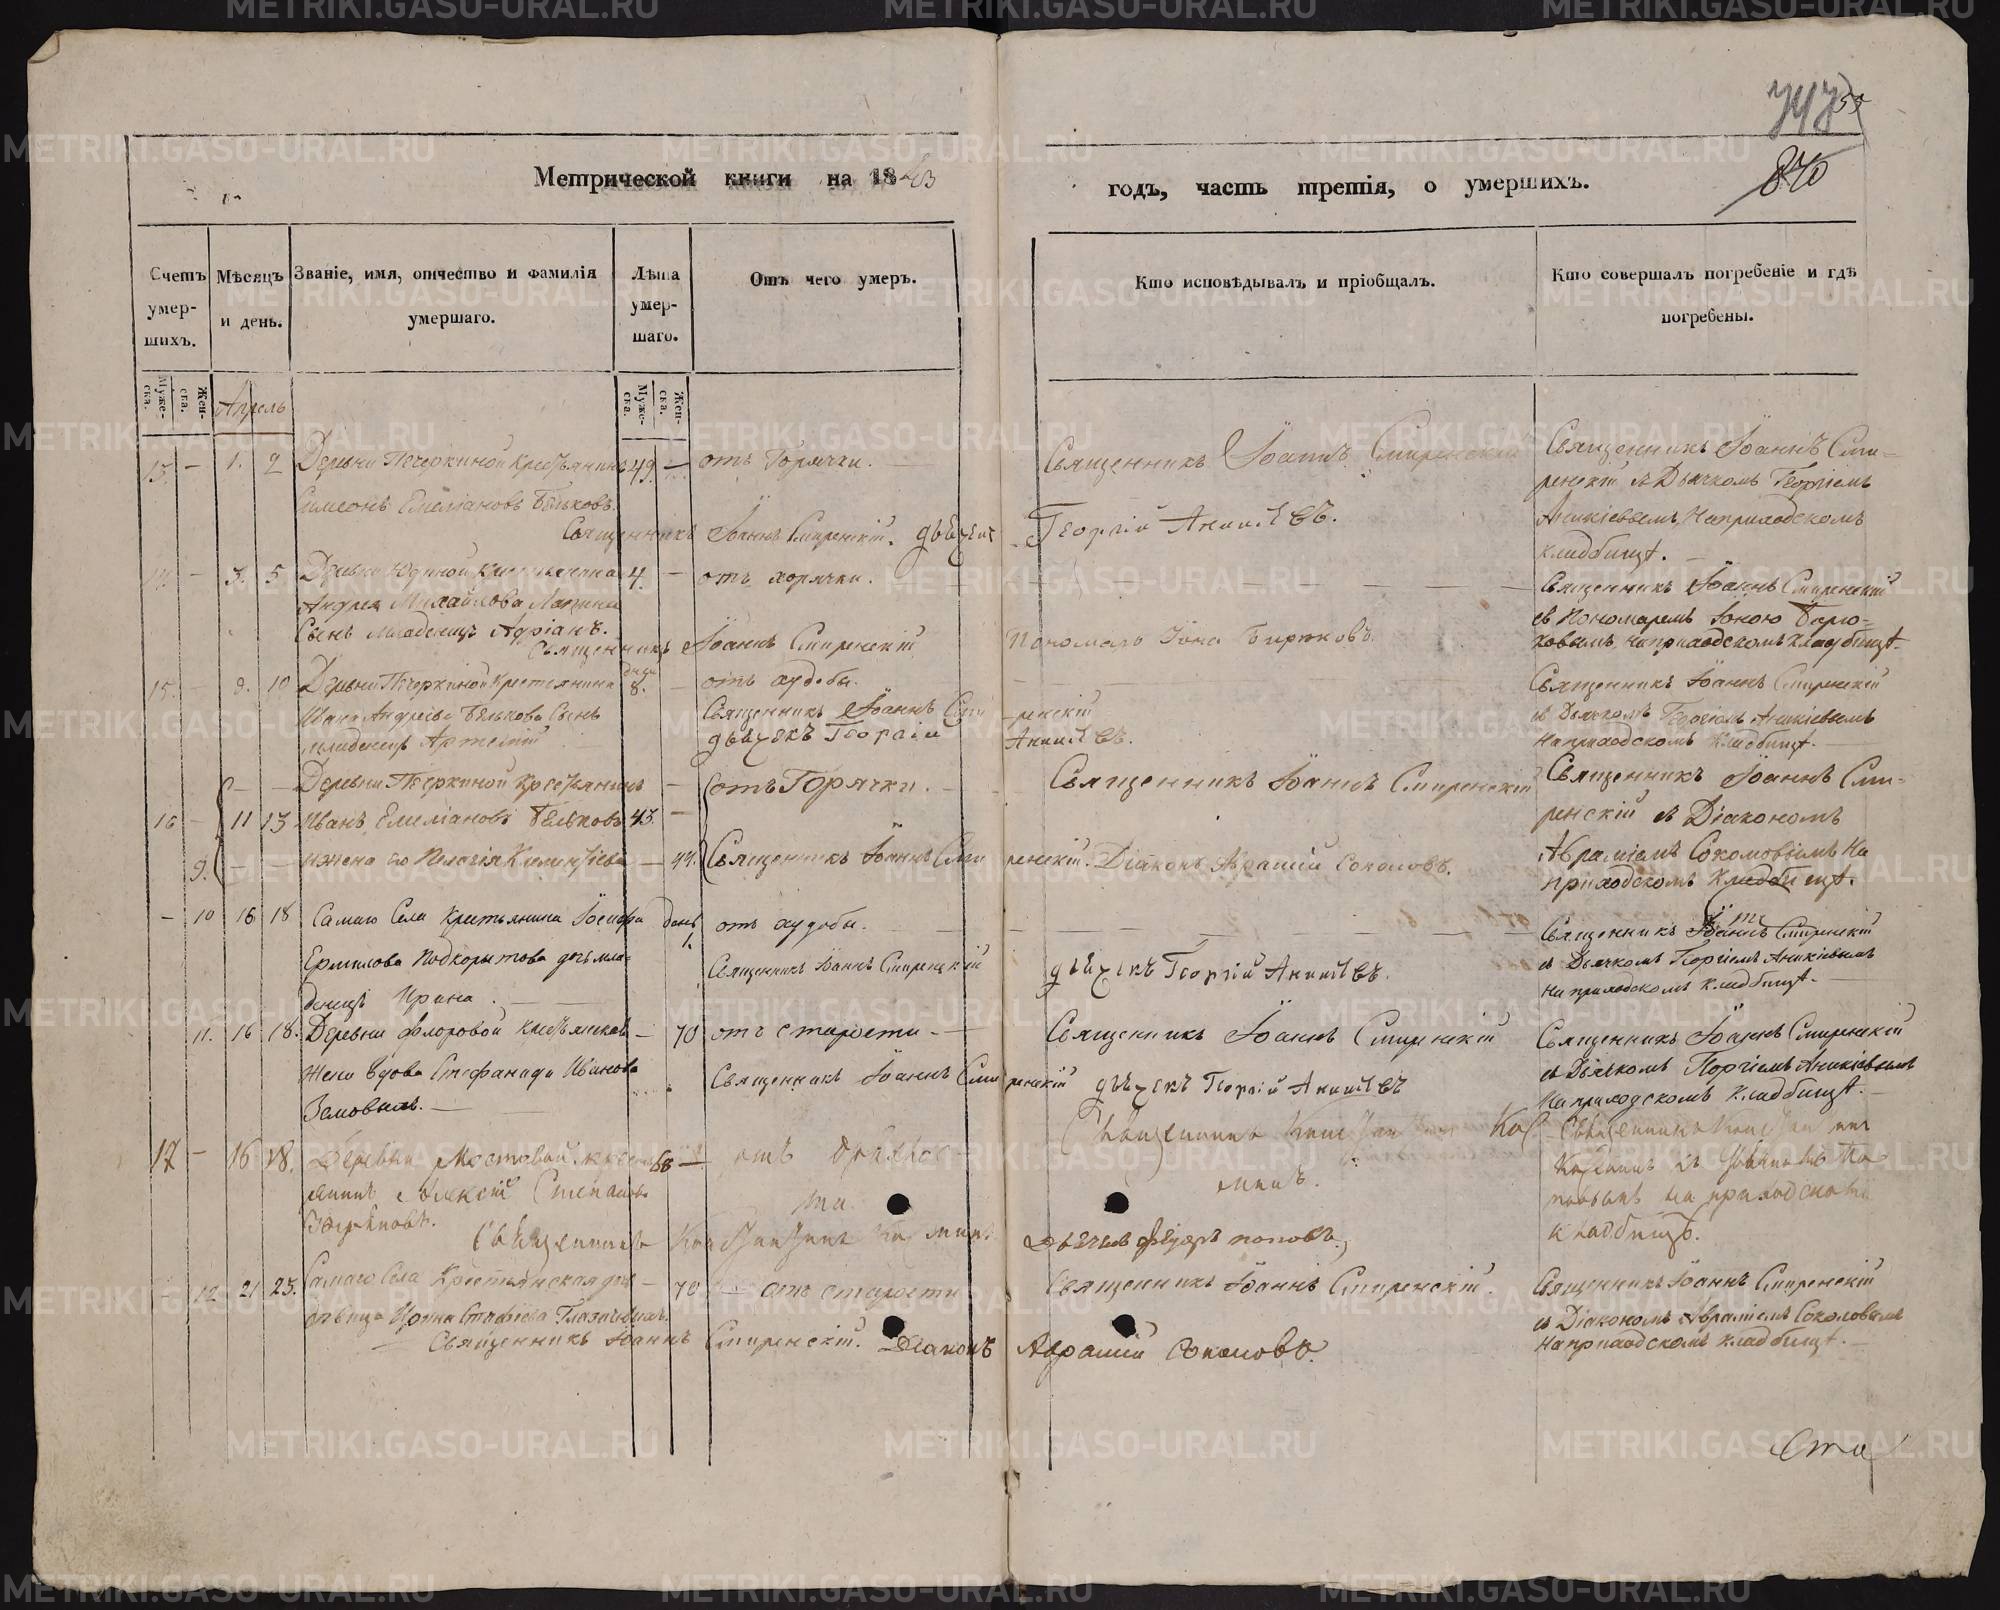 747
59
840
Метрической книги на 1843
годъ, часть третія, о умершихъ.
Счетъ умер-
шихъ.
Мѣсяцъ
и день.
Званіе, имя, отчество и фамилія
умершаго.
Лѣта
умер-
шаго.
Отъ чего умеръ.
Кто исповѣдывалъ и пріобщалъ.
Кто совершалъ погребеніе и гдѣ
погребены.
Муже-
ска.
Жен-
ска.
Апрель
Муже-
ска.
Жен-
ска.
13. - 1. 2 Деревни Печеркиной крестьянинъ 49. - отъ Горячки. Священникъ Іоаннъ Смиренскій
Симеонъ Емеліановъ Бѣльковъ.
Священникъ Іоаннъ Смиренскій. дьячекъ Георгій Аникіевъ.
Священникъ Іоаннъ Сми-
ренскій съ Дьячкомъ Георгіемъ
Аникіевымъ, На приходскомъ
кладбищѣ.
14. - 3. 5 Деревни Юдиной крестьянина 4. - отъ горячки.
Андрея Михайлова Лапина
Сынъ младенецъ Адріанъ.
Священникъ Іоаннъ Смиренскій Пономарь Іона Бирюковъ.
Священникъ Іоаннъ Смиренскій
съ Пономаремъ Іоною Бирю-
ковымъ, на приходскомъ кладбищѣ.
15. - 8. 10 Деревни Печеркиной Крестьянина дней 8. - отъ худобы.
Ивана Андреева Белькова Сынъ
младенецъ Артемій
Священникъ Іоаннъ Смиренскій
дьячекъ Георгій Аникіевъ.
Священникъ Іоаннъ Смиренскій
съ Дьячкомъ Георгіемъ Аникіевымъ
На приходскомъ кладбищѣ.
Деревни Печеркиной Крестьянинъ - отъ Горячки. Священникъ Іоаннъ Смиренскій
16 - 11 13 Иванъ Емеліановъ Бѣльковъ 43. -
9. - - и жена его Пелагія Климентіева - 44. Священникъ Іоаннъ Смиренскій. Діаконъ Аврамій Соколовъ.
Священникъ Іоаннъ Сми-
ренскій съ Діакономъ
Авраміемъ Соколовымъ На
приходскомъ Кладбищѣ.
- 10 16 18 Самаго Села Крестьянина Іосифа день 1. отъ худобы.
Ермилова Подкорытова дочь мла-
денецъ Ирина.
Священникъ Іоаннъ Смиренскій дьячекъ Георгій Аникіевъ.
Священникъ Іоаннъ Смиренскій
съ Дьячкомъ Георгіемъ Аникіевымъ
На приходскомъ кладбищѣ.
11. 16 18. Деревни Флоровой крестьянская - 70 отъ старости - Священникъ Іоаннъ Смиренскій
Жена вдова Стефанида Иванова
Священникъ Іоаннъ Смиренскій дьячекъ Георгій Аникіевъ
Священникъ Іоаннъ Смиренскій
съ Дьячкомъ Георгіемъ Аникіевымъ
На приходскомъ Кладбищѣ.
17 - 16 18. Деревни Мостовой кресть- 68 - отъ дряхлос-
янинъ Алексій Степановъ
ти.
Священникъ Константинъ Кос-
минъ.
Священникъ Константинъ Косминъ Дьячекъ Федоръ Поповъ.
Священникъ Константинъ
Косминъ съ Дьячкомъ По-
повымъ на приходскомъ
кладбищѣ.
- 12 21 23. Самаго Села Крестьянская де- - 70 - отъ старости Священникъ Іоаннъ Смиренскій.
Священникъ Іоаннъ Смиренскій. Діаконъ Аврамій Соколовъ.
Священникъ Іоаннъ Смиренскій
съ Діакономъ Авраміемъ Соколовымъ
На приходскомъ кладбищѣ.
METRIKI.GASO-URAL.RU